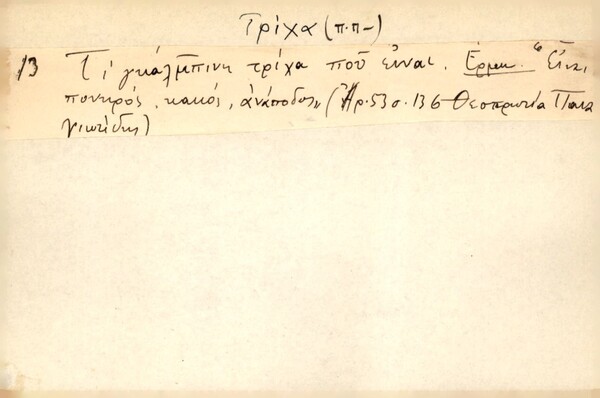 Τρίχα (π.π-)
13 Τί γκάλμπινη τρίχα ποῦ εἶναι. Ἑρμην. "Εἶναι
πονηρός, κακός, ἀνάποδος" (Ἀρ. 53 σ. 136 Θεσπρωτία Πανα
γιωτίδης)